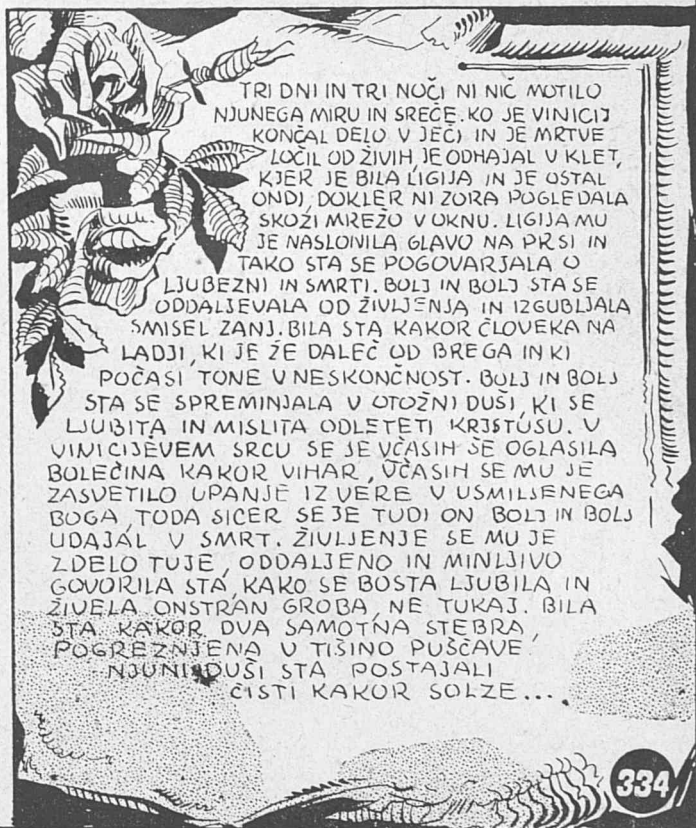 TRI DNI IN TRI NOČI NI NIČ MOTILO
NJUNEGA MIRU IN SREČE. KO JE VINICIJ
KONČAL DELO V JEČI IN JE MRTVE
LOČIL OD ŽIVIH, JE ODHAJAL V KLET,
KJER JE BILA LIGIJA IN JE OSTAL
ONDI, DOKLER NI ZORA POGLEDALA
SKOZI MREŽO V OKNU. LIGIJA MU
JE NASLONILA GLAVO NA PRSI IN
TAKO STA SE POGOVARJALA O
LJUBEZNI IN SMRTI. BOLJ IN BOLJ STA SE
ODDALJEVALA OD ŽIVLJENJA IN IZGUBLJALA
SMISEL ZANJ. BILA STA KAKOR ČLOVEKA NA
LADJI, KI JE ŽE DALEČ OD BREGA IN KI
POČASI TONE V NESKONČNOST. BOLJ IN BOLJ
STA SE SPREMINJALA V OTOŽNI DUŠI, KI SE
LJUBITA IN MISLITA ODLETETI KRISTUSU. V
VINICIJEVEM SRCU SE JE VČASIH ŠE OGLASILA
BOLEČINA KAKOR VIHAR, VČASIH SE MU JE
ZASVETILO UPANJE IZ VERE V USMILJENEGA
BOGA, TODA SICER SE JE TUDI ON BOLJ IN BOLJ
UDAJAL V SMRT. ŽIVLJENJE SE MU JE
ZDELO TUJE, ODDALJENO IN MINLJIVO
GOVORILA STA, KAKO SE BOSTA LJUBILA IN
ŽIVELA ONSTRAN GROBA, NE TUKAJ. BILA
STA KAKOR DVA SAMOTNA STEBRA,
POGREZNJENA V TIŠINO PUŠČAVE.
NJUNI DUŠI STA POSTAJALI
ČISTI KAKOR SOLZE...
334